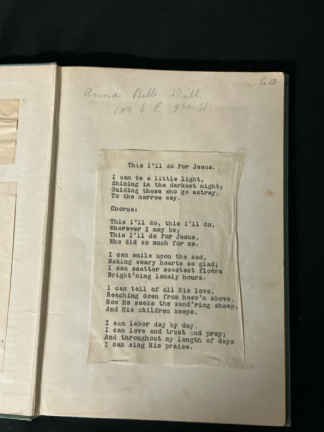 Anna Belle
This I'll do For Jesus.
I can be a little light,
Shining in the darkest night;
Guiding those who go astray,
To the narrow way.
Chorus:
This I'll do, this I'll do,
Wherever I may be;
This I'll do For Jesus,
Who did so much for me.
I can smile upon the sad,
Making weary hearts so glad;
I can scatter sweetest flowrs
Bright'ning lonely hours.
I can tell of all His love,
Reaching down from heav'n above,
How He seeks the wand'ring sheep,
And His children keeps.
I can labor day by day,
I can love and trust and pray;
And throughout my length of days
I can sing His praise.